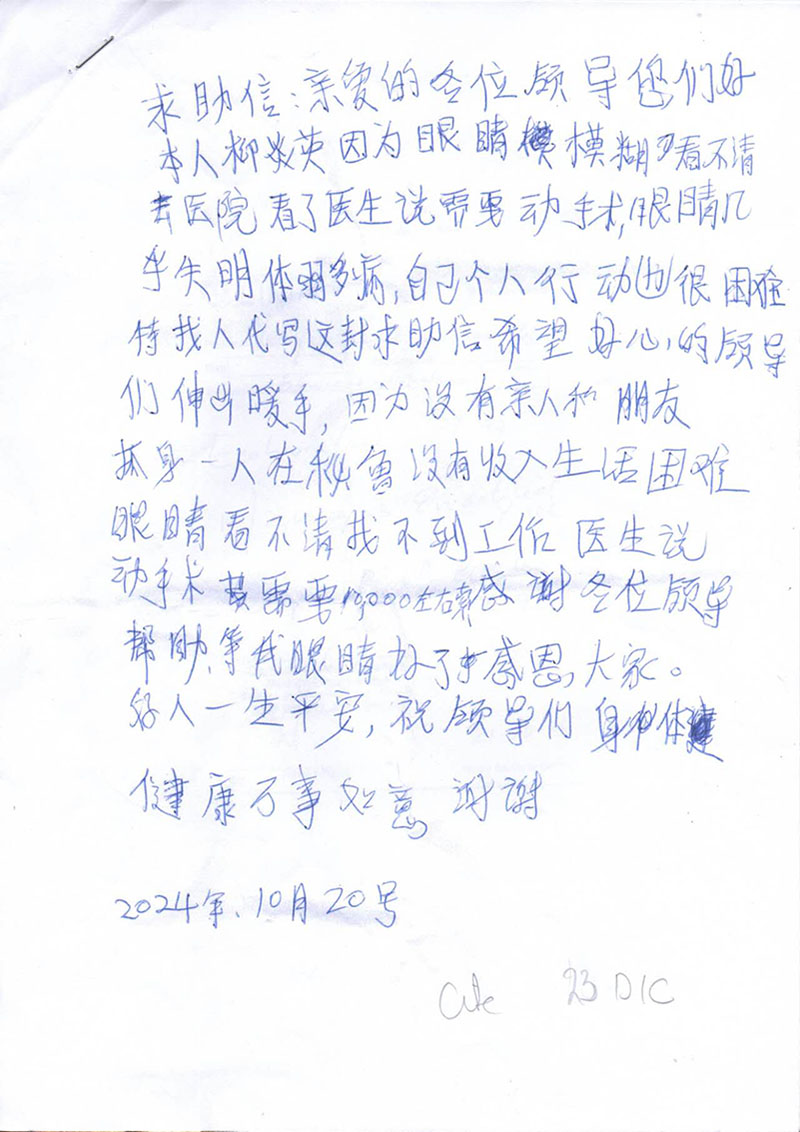 求助信:亲爱的各位领导您们好
本人柳炎英因为眼睛模糊了看不清
去医院看了医生说需要动手术,眼睛几
乎失明体弱多病,自己个人行动也很困难
特找人代写这封求助信希望好心的领导
们伸出暖手,因为没有亲人和朋友
孤身一人在秘鲁没有收入生活困难
眼睛看不清找不到工作医生说
动手术需要10,000左右感谢各位领导
帮助,等我眼睛好了感恩大家。
好人一生平安,祝领导们身体
健康万事如意谢谢
2024年.10月20号
23 DIC